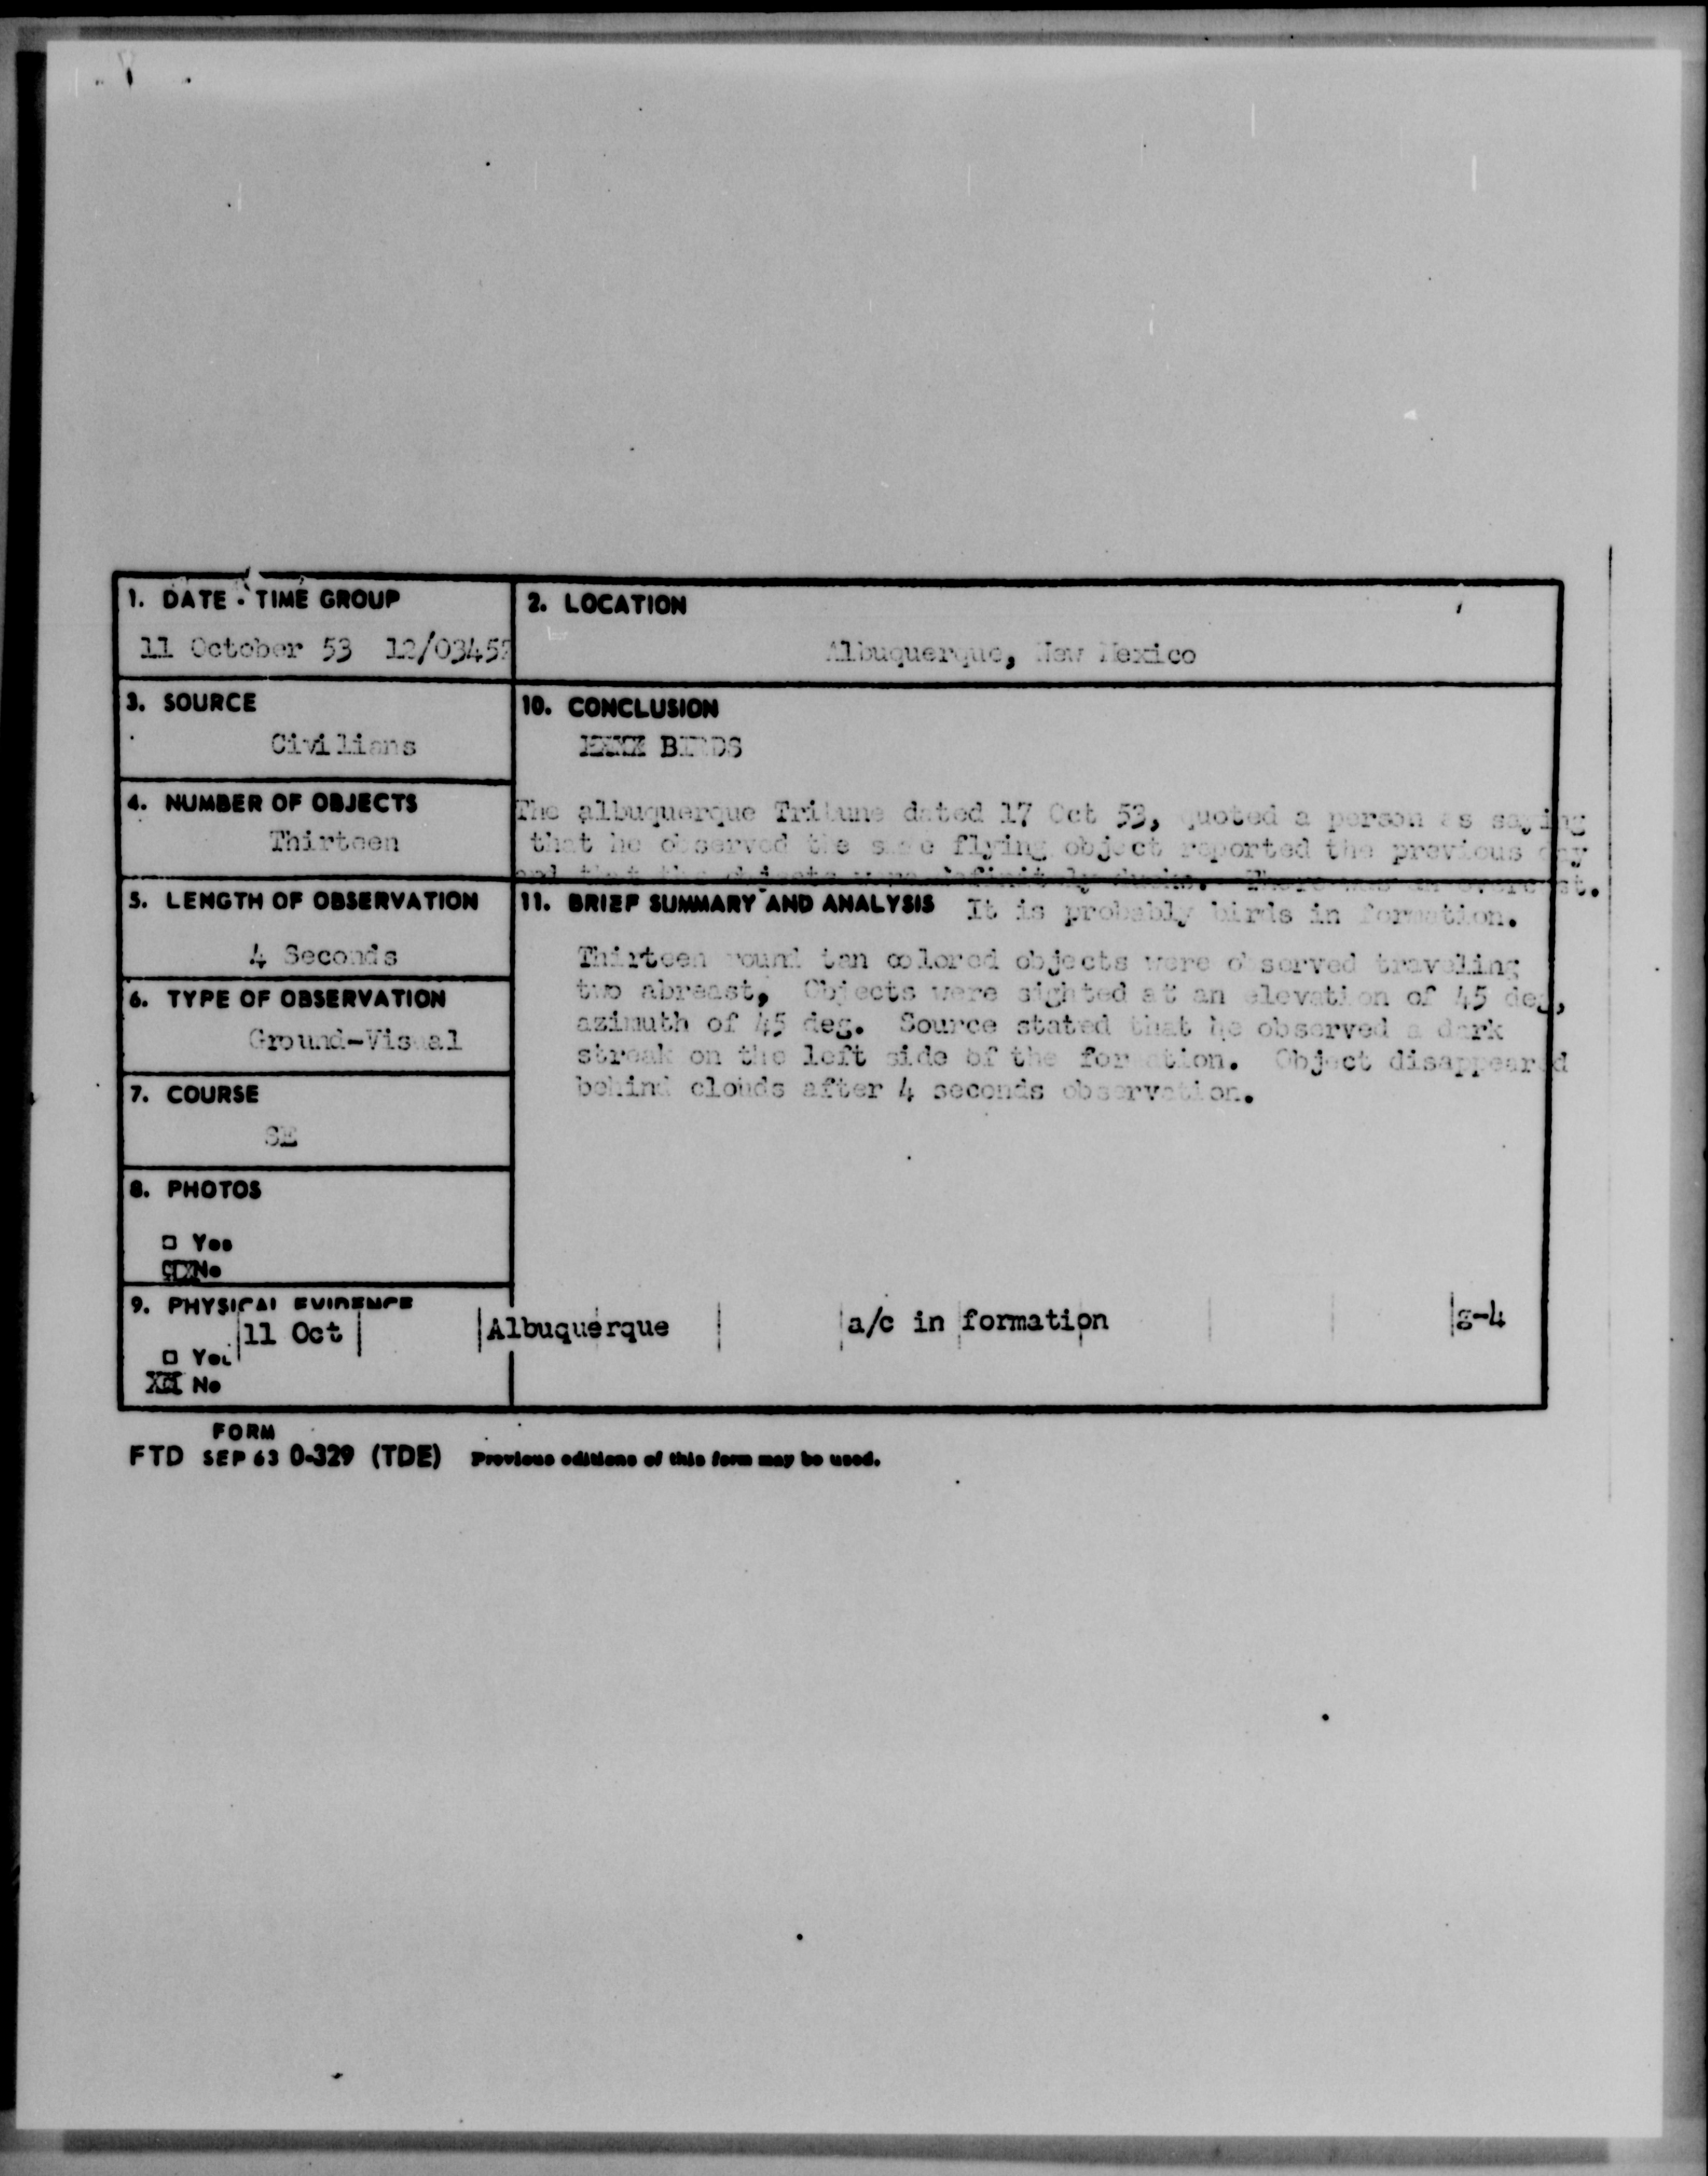 1. DATE - TIME GROUP
11 October 53 12/0345Z
2. LOCATION
Albuquerque, New Mexico
3. SOURCE
Civilians
10. CONCLUSION
BIRDS
The albuquerque Tribune dated 17 Oct 53, quoted a person as saying
that he observed the same flying object reported the previous day
and that the objects were definitely ducks. There was an overcast.
4. NUMBER OF OBJECTS
Thirteen
5. LENGTH OF OBSERVATION
4 Seconds
11. BRIEF SUMMARY AND ANALYSIS It is probably birds in formation.
Thirteen round tan colored objects were observed traveling
two abreast, Objects were sighted at an elevation of 45 deg,
azimuth of 45 deg. Source stated that he observed a dark
streak on the left side of the formation. Object disappeared
behind clouds after 4 seconds observation.
6. TYPE OF OBSERVATION
Ground-Visual
7. COURSE
SE
8. PHOTOS
□ Yes
No
9. PHYSICAL EVIDENCE
11 Oct Albuquerque a/c in formation g-4
□ Yes
No
FORM
FTD SEP 63 0-329 (TDE) Previous editions of this form may be used.